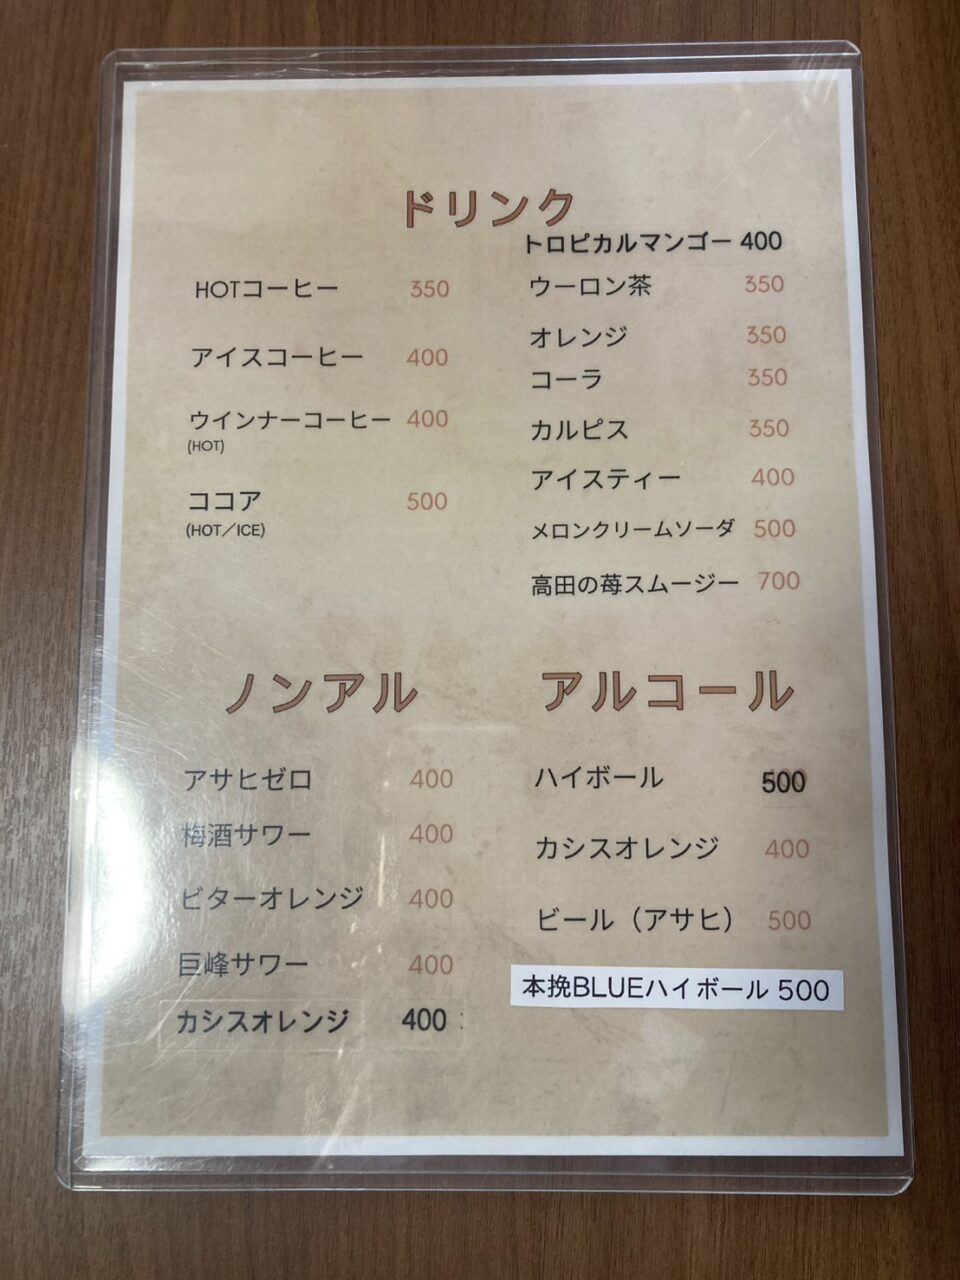 ドリンク
HOTコーヒー 350
アイスコーヒー 400
ウインナーコーヒー 400
(HOT)
ココア 500
(HOT／ICE)
トロピカルマンゴー 400
ウーロン茶 350
オレンジ 350
コーラ 350
カルピス 350
アイスティー 400
メロンクリームソーダ 500
高田の苺スムージー 700
ノンアル
アサヒゼロ 400
梅酒サワー 400
ビターオレンジ 400
巨峰サワー 400
カシスオレンジ 400
アルコール
ハイボール 500
カシスオレンジ 400
ビール（アサヒ） 500
本挽BLUEハイボール 500